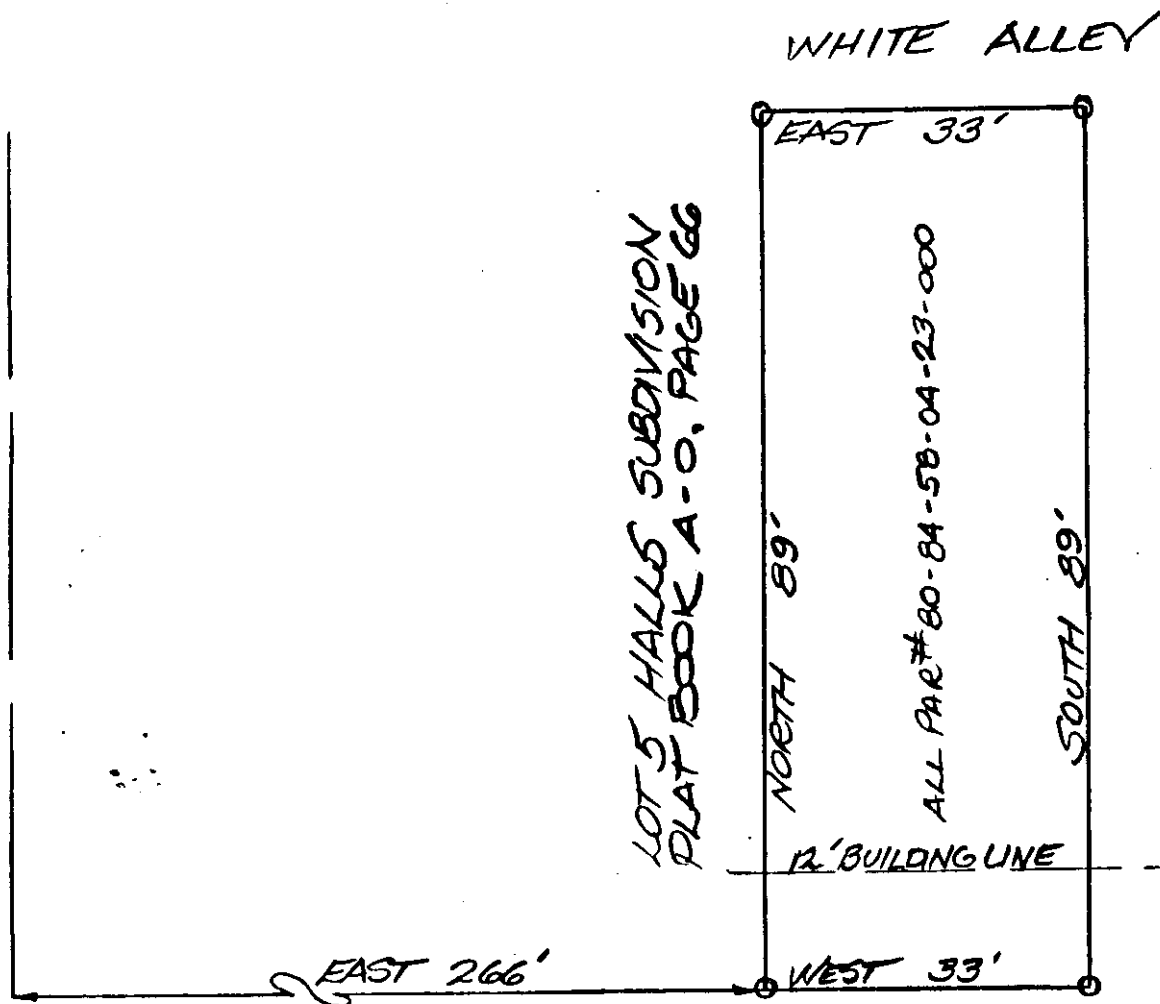 WHITE ALLEY
EAST 33'
LOT 5 HALLS SUBDIVISION
PLAT BOOK A-O, PAGE 66
NORTH 89'
ALL PAR# 80-84-58-04-23-000
SOUTH 89'
12' BUILDING LINE
EAST 266'
WEST 33'